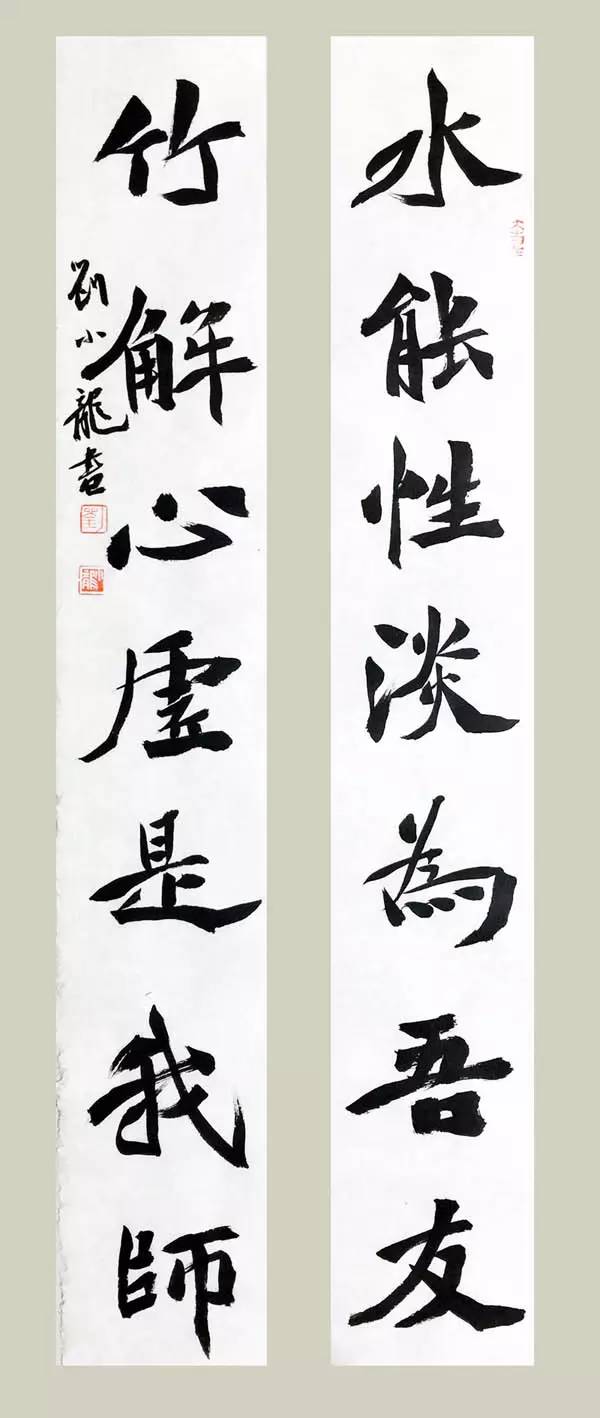 水能性淡為吾友
竹解心虛是我師
劉小龍書